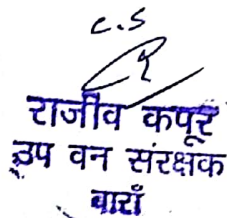 C.S
राजीव कपूर
उप वन संरक्षक
बाराँ